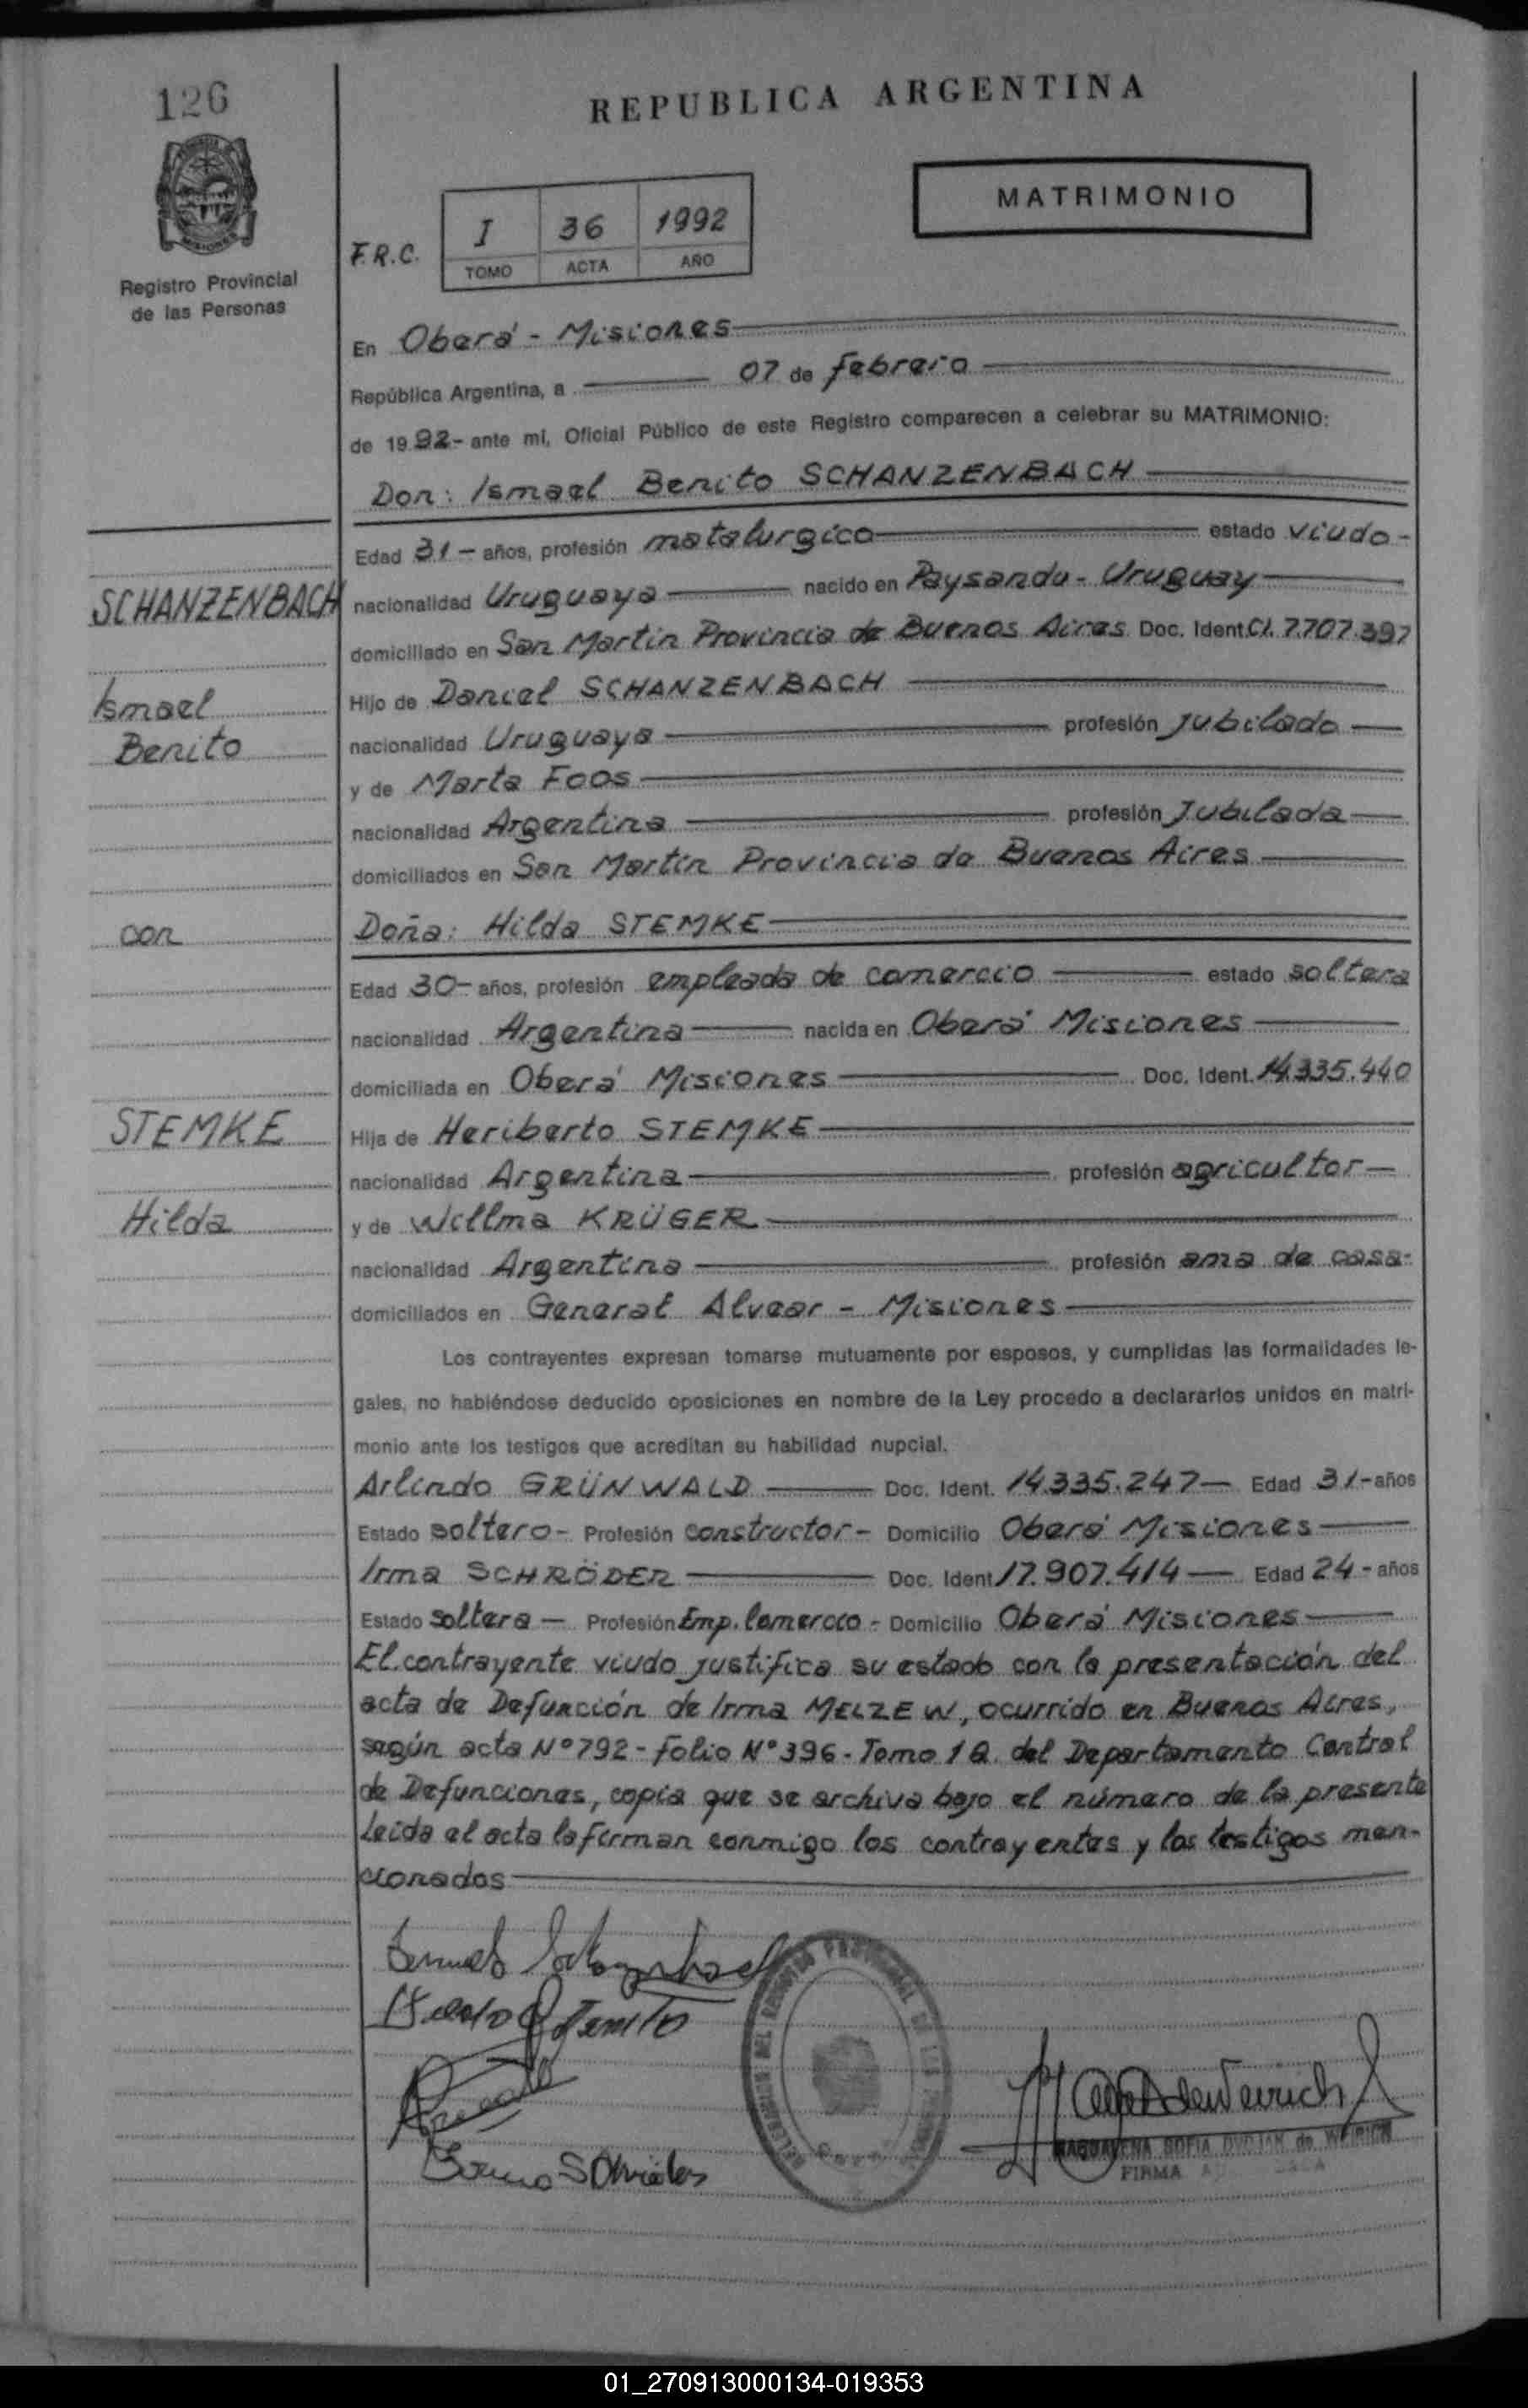 126
REPUBLICA ARGENTINA
MATRIMONIO
Registro Provincial
de las Personas
F.R.C.
I 36 1992
TOMO ACTA AÑO
En Oberá - Misiones
República Argentina, a 07 de febrero
de 1992- ante mí, Oficial Público de este Registro comparecen a celebrar su MATRIMONIO:
Don: Ismael Benito SCHANZENBACH
Edad 31- años, profesión metalurgico estado viudo-
SCHANZENBACH
nacionalidad Uruguaya nacido en Paysandu - Uruguay
domiciliado en San Martin Provincia de Buenos Aires Doc. Ident. CI. 7.707.397
Ismael
Hijo de Daniel SCHANZENBACH
Benito
nacionalidad Uruguaya profesión jubilado
y de Marta FOOS
nacionalidad Argentina profesión Jubilada
domiciliados en San Martin Provincia de Buenos Aires
con
Doña: Hilda STEMKE
Edad 30- años, profesión empleada de comercio estado soltera
nacionalidad Argentina nacida en Oberá Misiones
domiciliada en Oberá Misiones Doc. Ident. 14.335.440
STEMKE
Hija de Heriberto STEMKE
nacionalidad Argentina profesión agricultor
Hilda
y de Willma KRÜGER
nacionalidad Argentina profesión ama de casa-
domiciliados en General Alvear - Misiones
Los contrayentes expresan tomarse mutuamente por esposos, y cumplidas las formalidades le-
gales, no habiéndose deducido oposiciones en nombre de la Ley procedo a declararlos unidos en matri-
monio ante los testigos que acreditan su habilidad nupcial.
Arlindo GRÜNWALD Doc. Ident. 14.335.247- Edad 31- años
Estado soltero- Profesión constructor- Domicilio Oberá Misiones
Irma SCHRÖDER Doc. Ident 17.907.414 Edad 24- años
Estado soltera - Profesión Emp. Comercio - Domicilio Oberá Misiones
El contrayente viudo justifica su estado con la presentación del
acta de Defunción de Irma MELZEW, ocurrido en Buenos Aires,
según acta Nº 792 - folio Nº 396 - Tomo 1 Q. del Departamento Central
de Defunciones, copia que se archiva bajo el número de la presente
Leida el acta la firman conmigo los contrayentes y los testigos men-
cionados
MAGDALENA SOFIA DVOJAK de WEIRICH
FIRMA
01_270913000134-019353